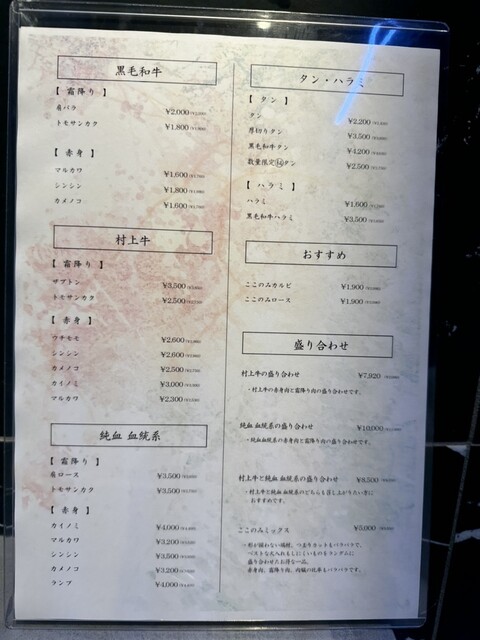 黒毛和牛
【 霜降り 】
肩バラ ¥2,000
トモサンカク ¥1,800
【 赤身 】
マルカワ ¥1,600
シンシン ¥1,800
カメノコ ¥1,600
村上牛
【 霜降り 】
ザブトン ¥3,500
トモサンカク ¥2,500
【 赤身 】
ウチモモ ¥2,600
シンシン ¥2,600
カメノコ ¥2,500
カイノミ ¥3,000
マルカワ ¥2,300
純血 血統系
【 霜降り 】
肩ロース ¥3,500
トモサンカク ¥3,500
【 赤身 】
カイノミ ¥4,000
マルカワ ¥3,200
シンシン ¥3,500
カメノコ ¥3,200
ランプ ¥4,000
タン・ハラミ
【 タン 】
タン ¥2,200
厚切りタン ¥3,500
黒毛和牛タン ¥4,200
数量限定 タン ¥2,500
【 ハラミ 】
ハラミ ¥1,600
黒毛和牛ハラミ ¥3,500
おすすめ
ここのみカルビ ¥1,900
ここのみロース ¥1,900
盛り合わせ
村上牛の盛り合わせ ¥7,920
・村上牛の赤身肉と霜降り肉の盛り合わせです。
純血 血統系の盛り合わせ ¥10,000
・純血血統系の赤身肉と霜降り肉の盛り合わせです。
村上牛と純血 血統系の盛り合わせ ¥8,500
・村上牛と純血 血統系のどちらも召し上がりたい方に
おすすめです。
ここのみミックス ¥5,000
・形が揃わない端材、つまりカットもバラバラで、
ベストな火入れもしにくいものをランダムに
盛り合わせたお得な一品。
赤身肉、霜降り肉、内臓の比率もバラバラです。